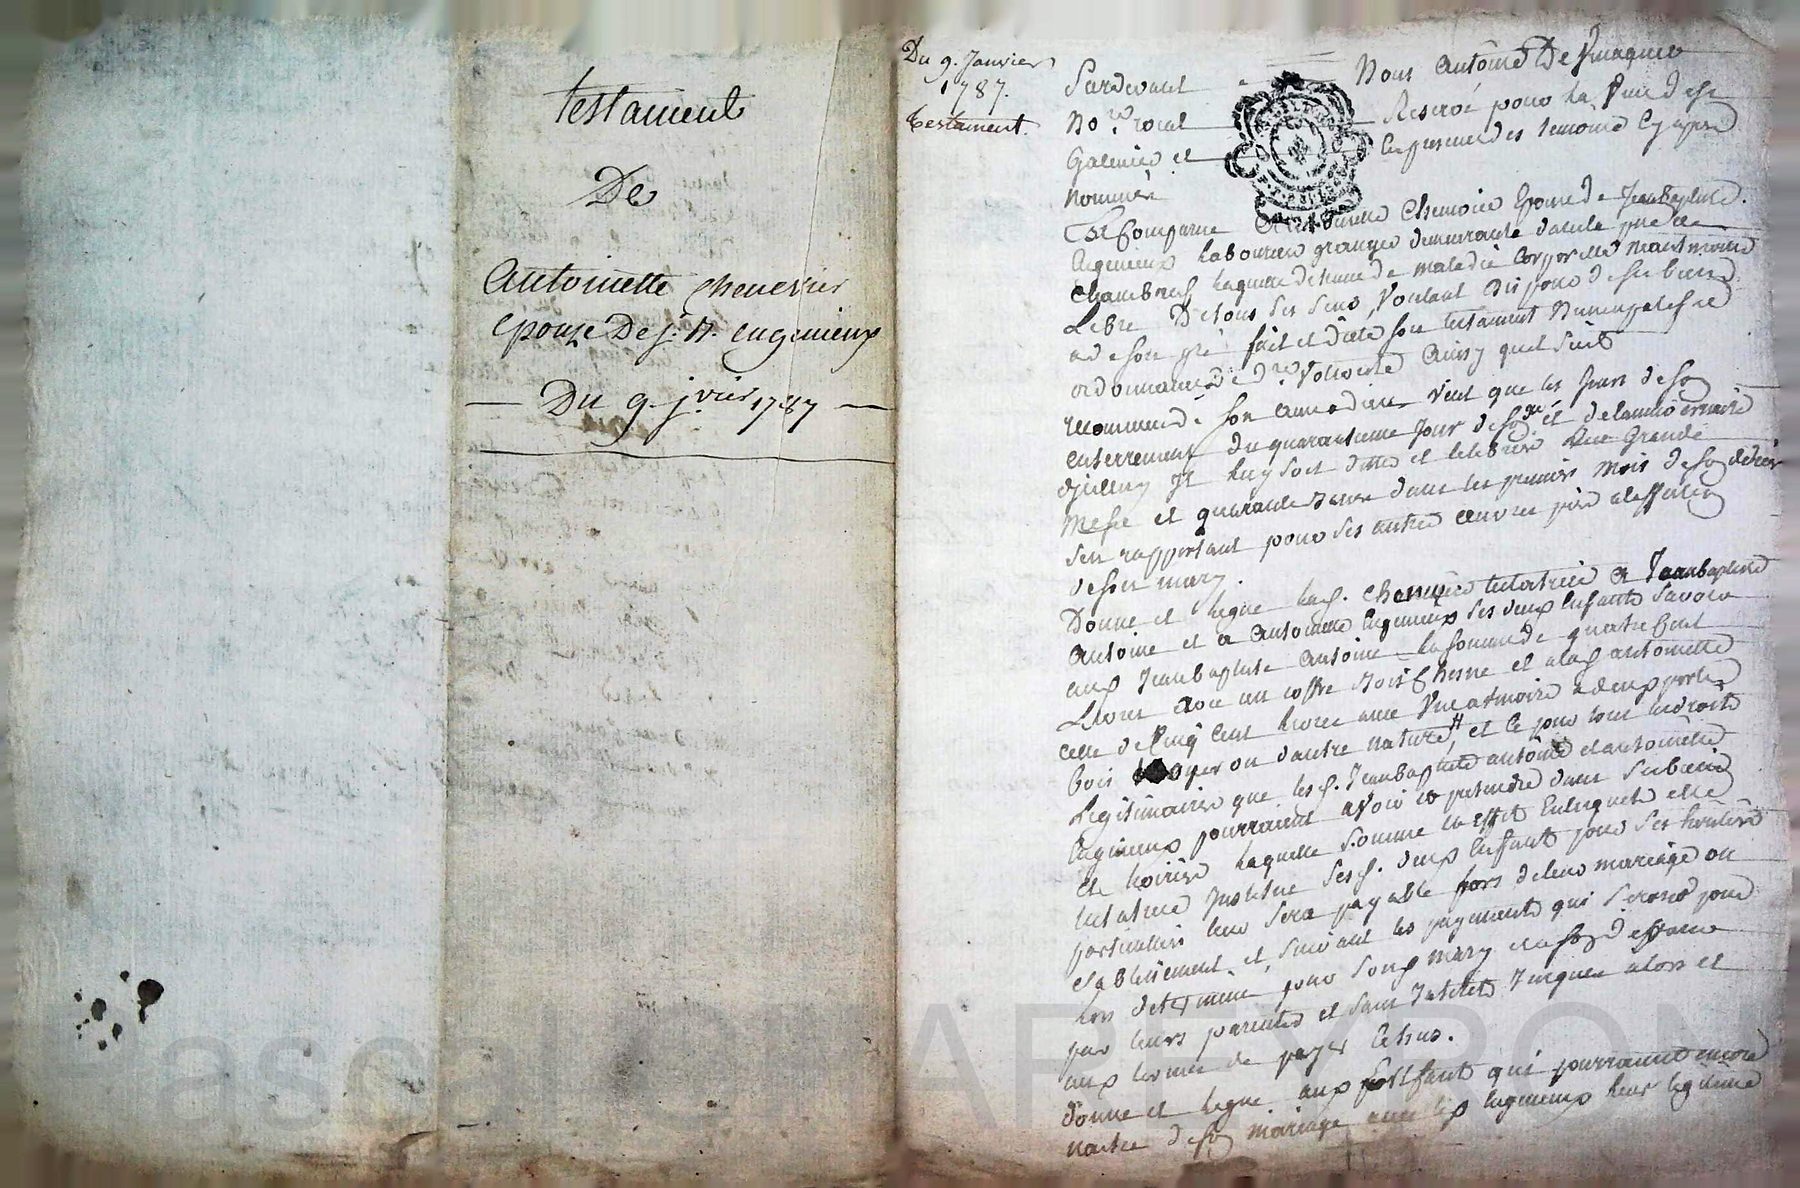 testament
De
Antoinette chenevier
epouse De j. B. engenieux
Du 9. jvier 1787
Du 9. Janvier
1787.
testament.
Pardevant Nous Antoine De
No.re roial Reservé pour la
Galmier et les presences des temoins cy après
nommés
Est Comparue Antoinette Chenevier Epouse de Jean Baptiste
Engenieux laboureur granger demeurante
Chambeuf laquelle detenue de maladie Corporelle neantmoins
Libre De tous ses sens, Voulant disposer de ses biens
a de son gré fait et dicté son testament Nuncupatif et
ordonnance de d.re Volonté Ainsy quel suit
recommande son ame a dieu, Veut que les jours de son
enterrement du quarantieme jour de son d. et de lanniversaire
dicelluy Il luy soit dittes et celebrées Une Grande
Messe et quarante basses dans les premiers mois de son décès
sen rapportant pour ses autres œuvres pies a laffection
de son mary.
Donne et legue lad. Chenevier testatrice a Jean baptiste
Antoine et a Antoinette Engenieux ses deux Enfants Savoir
aux Jean baptiste Antoine la somme de quatre Cent
Livres avec un coffre bois Chesne et a lad. antoinette
celle de Cinq Cent livres avec Une armoire a deux portes
bois noyer ou d'autre nature, et ce pour tous ses droits
Legitimaires que lesd. Jean baptiste antoine et antoinette
Engenieux pourraient avoir et pretendre dans ses biens
et hoirie laquelle somme et effets
testatrice Institue sesd. deux Enfants pour ses heritiers
particuliers leur sera payable lors de leur mariage ou
etablissement, et suivant les payements qui seront pour
lors determiné pour son d. mary et a son deffaut
par leurs parents et sans Interets jusques alors et
aux termes de payer Echus.
donne et legue aux Enfants qui pourraient encore
naitre de son mariage avec led. Engenieux leur legitime
Pascal CHAREYRON